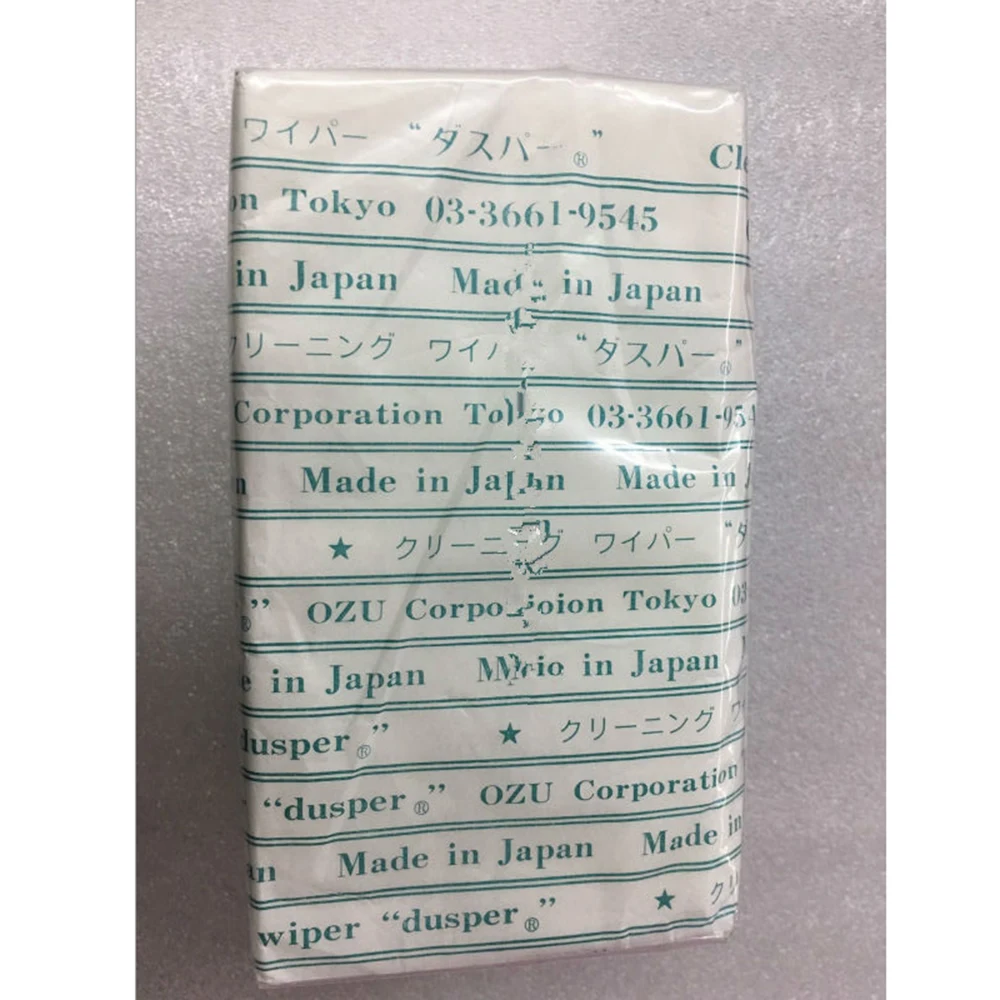 ワイパー “ダスパー®”
Tokyo 03-3661-9545
in Japan Made in Japan
クリーニング ワイパ “ダスパー®”
Corporation Tokyo 03-3661-954
Made in Japan Made in
★ クリーニング ワイパー “ダ
®” OZU Corporation Tokyo 03
e in Japan in Japan
dusper®” ★ クリーニング ワ
“dusper®” OZU Corporation
an Made in Japan Made in
wiper “dusper®” ★ クリ